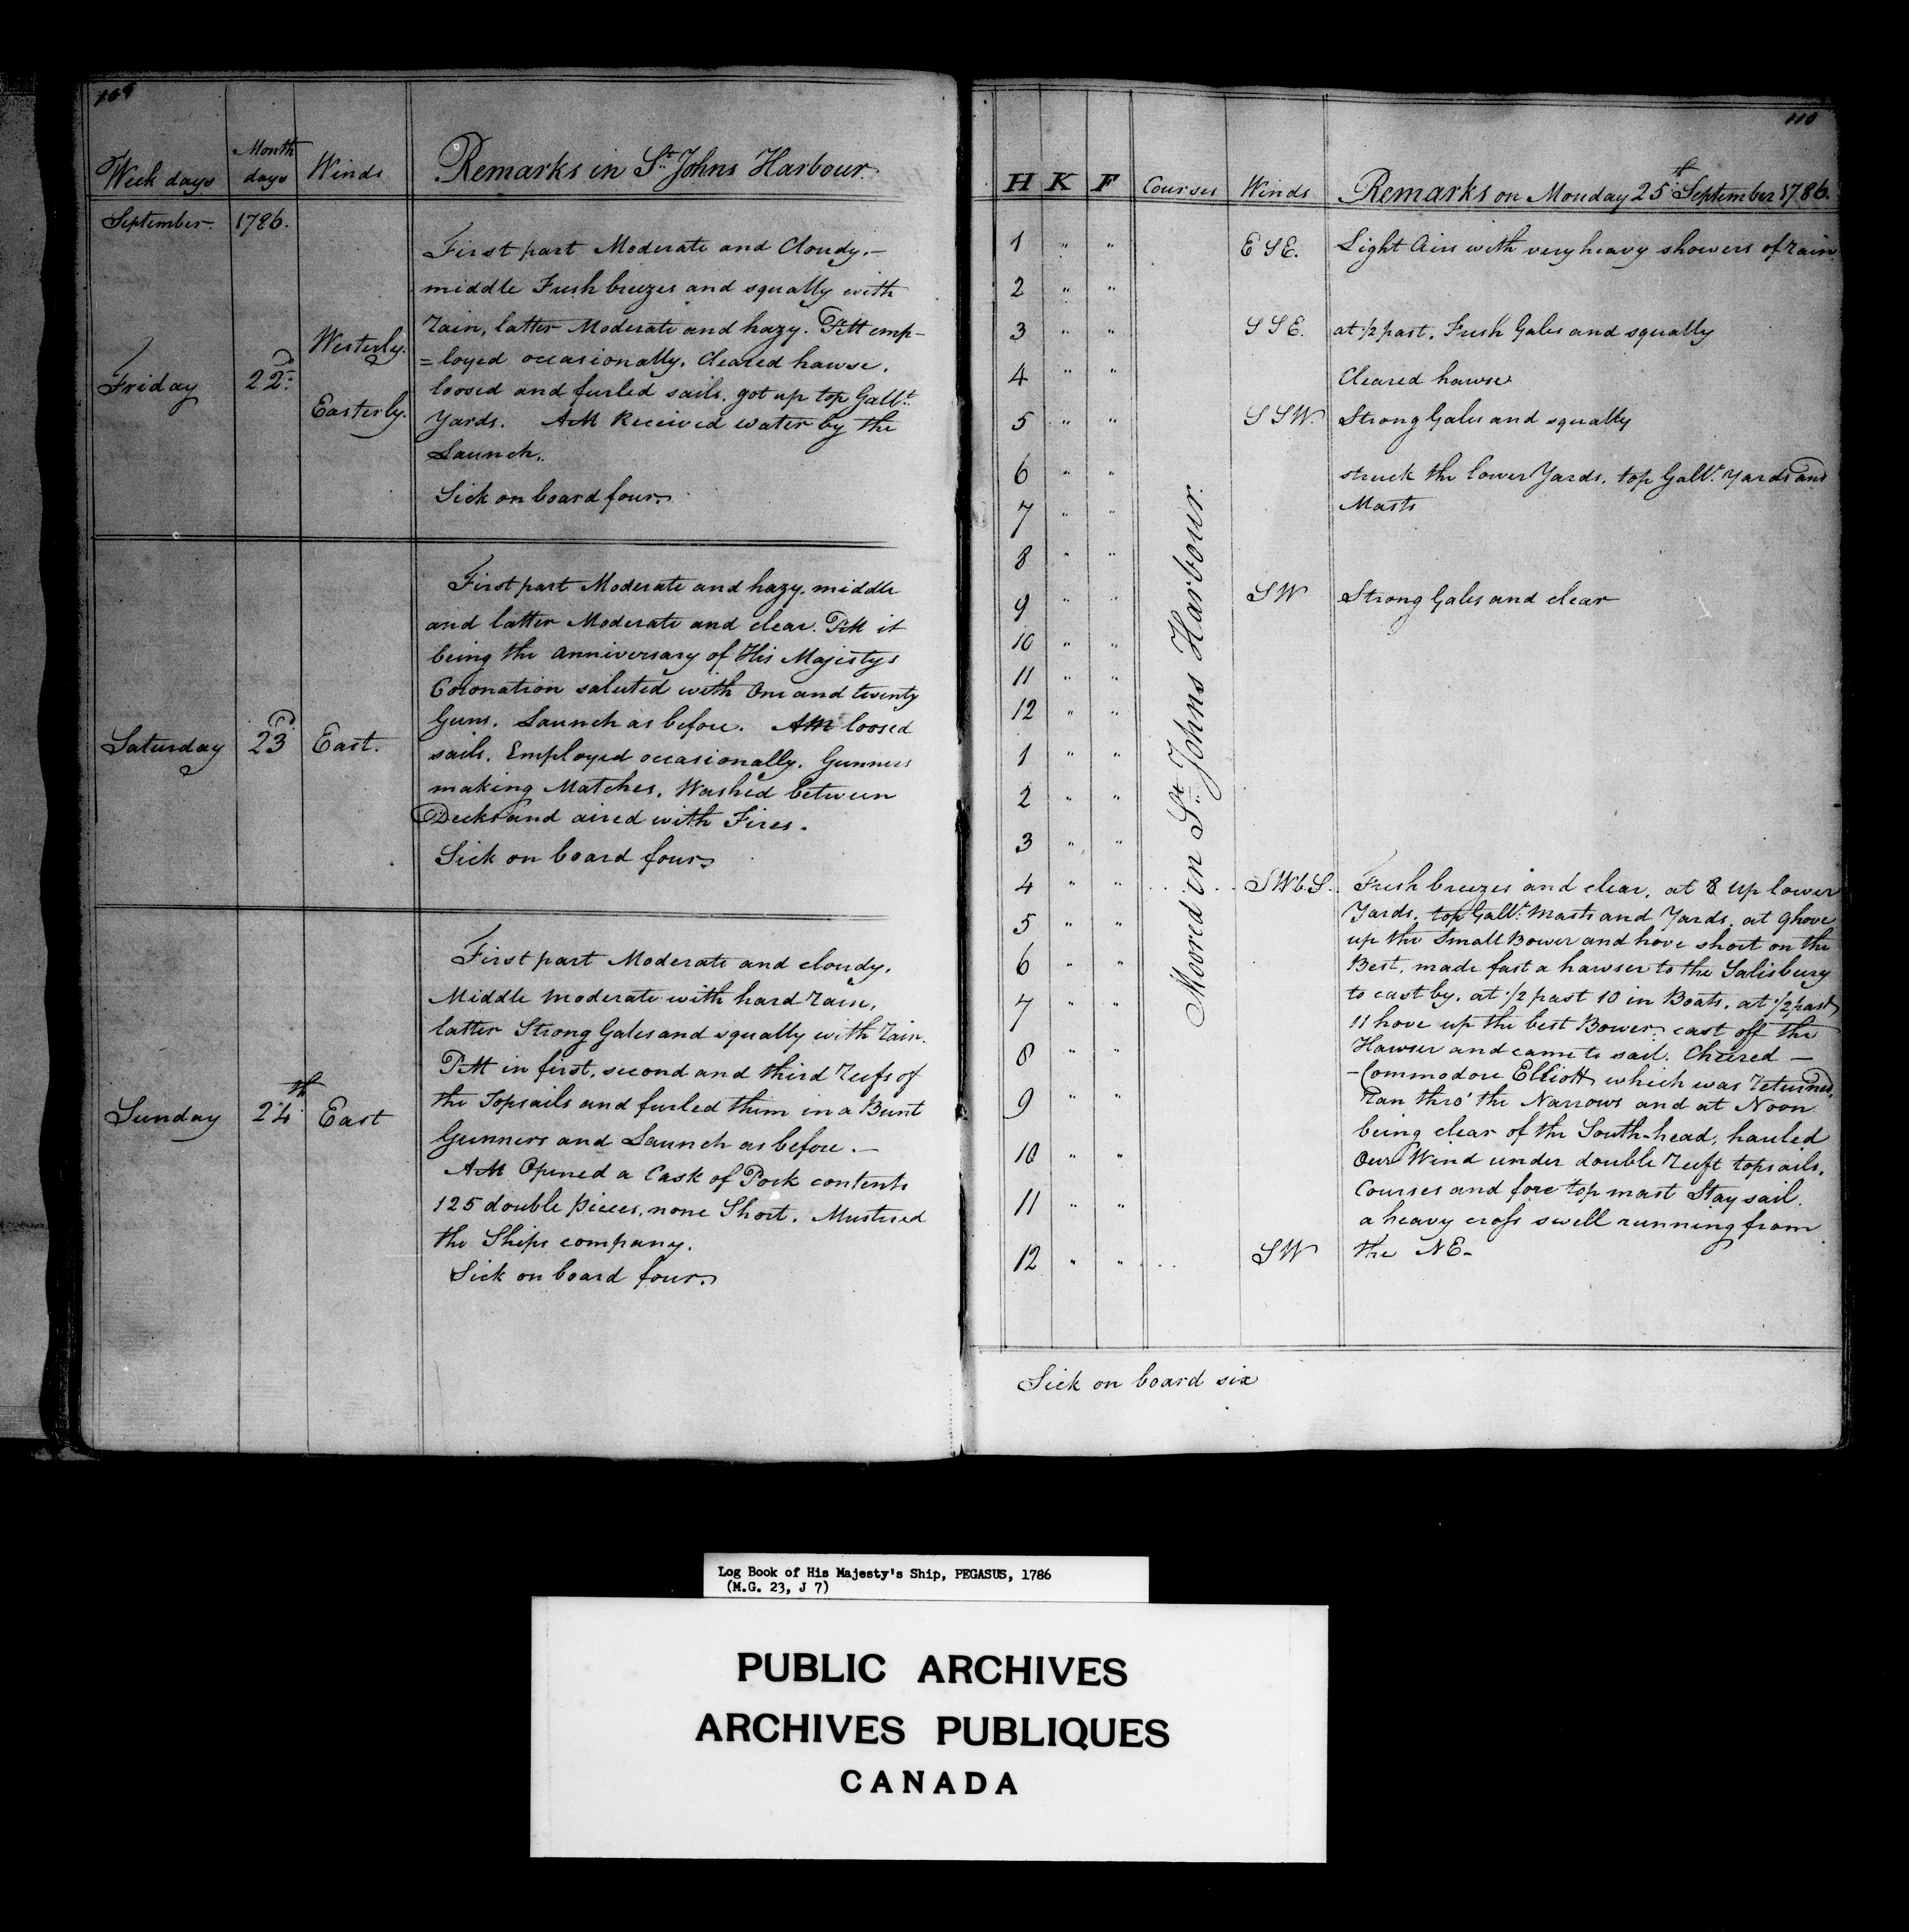 109
Week days Month days Winds Remarks in St. Johns Harbour.
September 1786.
Friday 22d. Westerly. Easterly.
First part Moderate and Cloudy.—
middle Fresh breezes and squally with
rain, latter Moderate and hazy. PM emp-
=loyed occasionally. Cleared hawse.
loosed and furled sails. got up top Gallt.
Yards. AM Received water by the
Launch.
Sick on board four.
Saturday 23d East.
First part Moderate and hazy. middle
and latter Moderate and clear. PM it
being the Anniversary of His Majestys
Coronation saluted with One and twenty
Guns. Launch as before. AM loosed
sails. Employed occasionally. Gunners
making Matches. Washed between
Decks and aired with Fires.
Sick on board four.
Sunday 24th East
First part Moderate and cloudy.
Middle moderate with hard rain.
latter Strong Gales and squally with rain.
PM in first, second and third reefs of
the Topsails and furled them in a Bunt
Gunners and Launch as before.—
AM Opened a Cask of Pork contents
125 double pieces, none Short. Mustered
the Ships company.
Sick on board four.
110
H K F Courses Winds Remarks on Monday 25th September 1786.
Moored in St. Johns Harbour.
1 " " E SE. Light Airs with very heavy showers of rain
2 " "
3 " " S S E. at 1/2 past. Fresh Gales and squally
4 " " Cleared hawse
5 " " S S W. Strong Gales and squally
6 " " struck the lower Yards. top Gallt. Yards and
7 " " Masts
8 " "
9 " " S W Strong Gales and clear
10 " "
11 " "
12 " "
1 " "
2 " "
3 " "
4 " " S W b S. Fresh breezes and clear. at 8 up lower
Yards. top Gallt. Masts and Yards. at 9 hove
5 " " up the Small Bower and hove short on the
6 " " Best. made fast a hawser to the Salisbury
7 " " to cast by. at 1/2 past 10 in Boats. at 1/2 past
11 hove up the best Bower. cast off the
8 " " Hawser and came to sail. Cheered —
— Commodore Elliott which was returned.
9 " " Ran thro' the Narrows and at Noon
being clear of the South-head, hauled
10 " " Our Wind under double reeft topsails.
11 " " Courses and fore top mast Stay sail.
a heavy cross swell running from
12 " " S W the NE.
Sick on board six
Log Book of His Majesty's Ship, PEGASUS, 1786
(M.G. 23, J 7)
PUBLIC ARCHIVES
ARCHIVES PUBLIQUES
CANADA